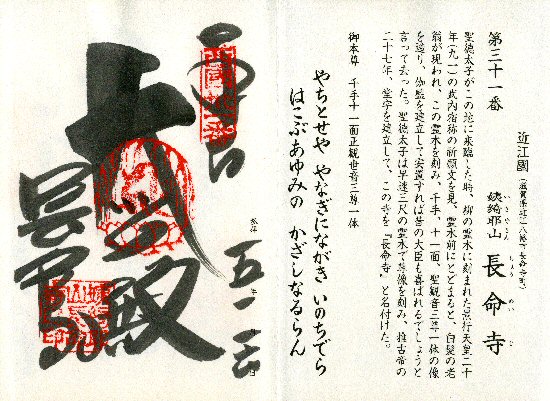 近江國
(滋賀県近江八幡市長命寺町)
姨綺耶山 長命寺
いきやさん ちょうめいじ
第三十一番
聖徳太子がこの地に来臨した時、柳の霊木に刻まれた景行天皇二十
年(九一)の武内宿祢の祈願文を見、霊木前にとどまると、白髪の老
翁が現われ、この霊木を刻み、千手、十一面、聖観音三尊一体の像
を造り、伽藍を建立して安置すれば昔の大臣も喜ばれるでしょうと
言って去った。聖徳太子は早速三尺の霊木で尊像を刻み、推古帝の
二十七年、堂宇を建立して、この寺を『長命寺』と名付けた。
御本尊 千手十一面正観世音三尊一体
やちとせや やなぎにながき いのちでら
はこぶあゆみの かざしなるらん
奉拝
大悲殿
長命寺